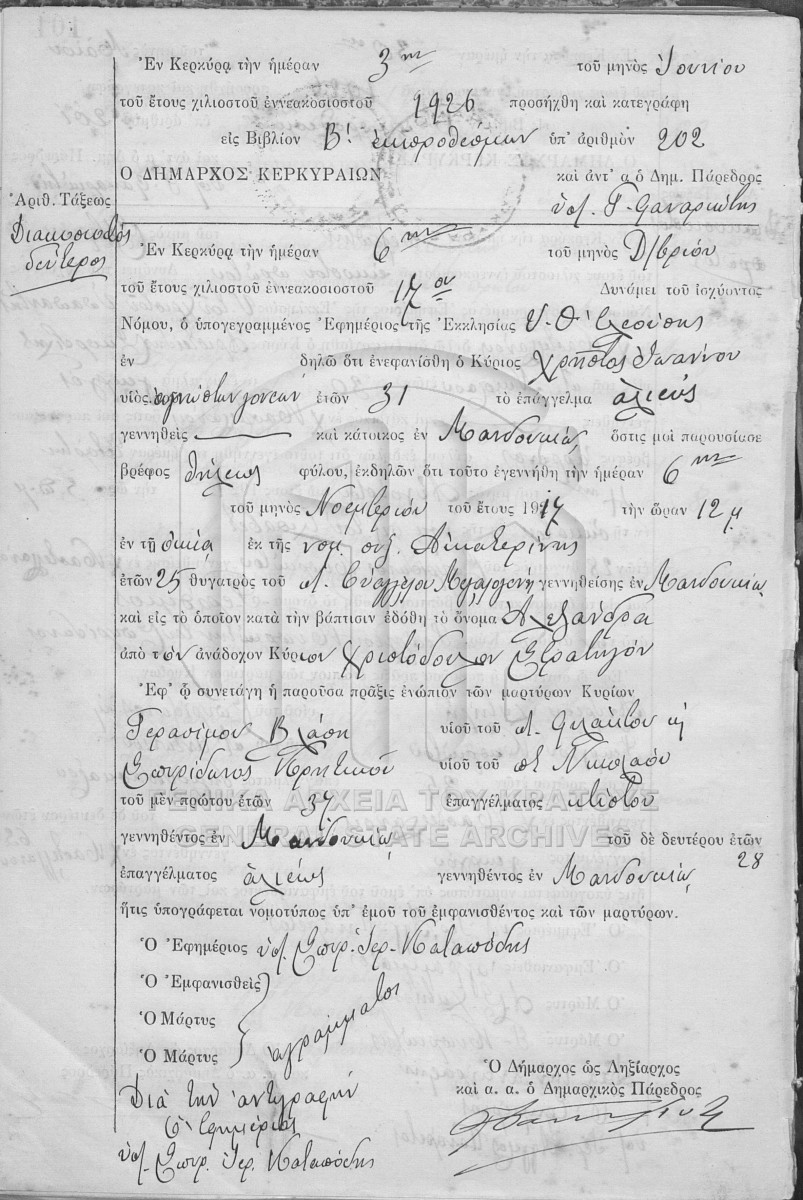 Ἐν Κερκύρᾳ τὴν ἡμέραν 3ην τοῦ μηνὸς Ἰουνίου
τοῦ ἔτους χιλιοστοῦ ἐννεακοσιοστοῦ 1926 προσήχθη καὶ κατεγράφη
εἰς Βιβλίον Β! ἐκπροθέσμων ὑπ' ἀριθμὸν 202
Ο ΔΗΜΑΡΧΟΣ ΚΕΡΚΥΡΑΙΩΝ καὶ ἀντ' α ὁ Δημ. Πάρεδρος
Ἀριθ. Τάξεως ὑπ. Γ.
Διακοσιοστὸς
δεύτερος
Ἐν Κερκύρᾳ τὴν ἡμέραν 6ην τοῦ μηνὸς Δ/βρίου
τοῦ ἔτους χιλιοστοῦ ἐννεακοσιοστοῦ 17ου Δυνάμει τοῦ ἰσχύοντος
Νόμου, ὁ ὑπογεγραμμένος Ἐφημέριος τῆς Ἐκκλησίας Υ. Θ. Ἐλεούσης
ἐν δηλῶ ὅτι ἐνεφανίσθη ὁ Κύριος Χρῆστος Ἰωάννου
υἱὸς ἀγνώστων γονέων ἐτῶν 31 τὸ ἐπάγγελμα ἁλιεὺς
γεννηθεὶς — καὶ κάτοικος ἐν Μανδουκίῳ ὅστις μοὶ παρουσίασε
βρέφος θήλεως φύλου, ἐκδηλῶν ὅτι τοῦτο ἐγεννήθη τὴν ἡμέραν 6ην
τοῦ μηνὸς Νοεμβρίου τοῦ ἔτους 1917 τὴν ὥραν 12 μ.
ἐν τῇ οἰκίᾳ ἐκ τῆς νομ. συζ. Αἰκατερίνης
ἐτῶν 25 θυγατρὸς τοῦ Εὐαγγέλου γεννηθείσης ἐν Μανδουκίῳ
καὶ εἰς τὸ ὁποῖον κατὰ τὴν βάπτισιν ἐδόθη τὸ ὄνομα Ἀλεξάνδρα
ἀπὸ τὸν ἀνάδοχον Κύριον Χριστόδουλον Στρατηγὸν
Ἐφ' ᾧ συνετάγη ἡ παροῦσα πρᾶξις ἐνώπιον τῶν μαρτύρων Κυρίων
Γερασίμου Βλάση υἱοῦ τοῦ
Σπυρίδωνος Κρητικοῦ υἱοῦ τοῦ Νικολάου
ΓΕΝΙΚΑ ΑΡΧΕΙΑ ΤΟΥ ΚΡΑΤΟΥΣ
τοῦ μὲν πρώτου ἐτῶν 37 ἐπαγγέλματος κτίστου
GENERAL STATE ARCHIVES
γεννηθέντος ἐν Μανδουκίῳ τοῦ δὲ δευτέρου ἐτῶν 28
ἐπαγγέλματος ἁλιέως γεννηθέντος ἐν Μανδουκίῳ
ἥτις ὑπογράφεται νομοτύπως ὑπ' ἐμοῦ τοῦ ἐμφανισθέντος καὶ τῶν μαρτύρων.
Ὁ Ἐφημέριος ὑπ. Σπυρ. Ἱερ. Καταπόδης
Ὁ Ἐμφανισθεὶς
Ὁ Μάρτυς ἀγράμματοι
Ὁ Μάρτυς
Ὁ Δήμαρχος ὡς Ληξίαρχος
καὶ α. α. ὁ Δημαρχικὸς Πάρεδρος
Διὰ τὴν ἀντιγραφὴν
Ὁ Ἐφημέριος
ὑπ. Σπυρ. Ἱερ. Καταπόδης